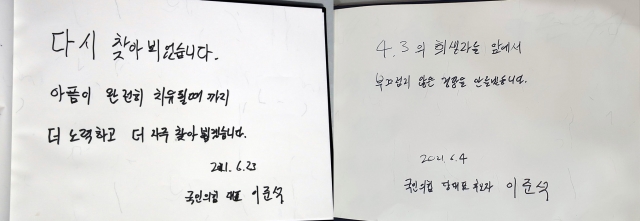 다시 찾아 뵈었습니다.
아픔이 완전히 치유될때 까지
더 노력하고 더 자주 찾아 뵙겠습니다.
2021.6.23
국민의힘 대표 이준석
4.3의 희생자들 앞에서
부끄럽지 않은 정당을 만들겠습니다.
2021.6.4
국민의힘 당대표 후보자 이준석